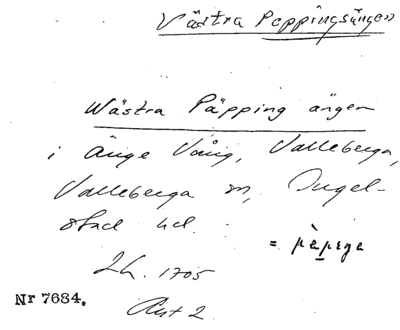 Västra Peppingsängen
Wästra Päpping ängen
i Änge Vång, Valleberga,
Valleberga sn, Ingel-
stad hd.
= pàpega
Lh. 1705
Akt 2.
Nr 7684.